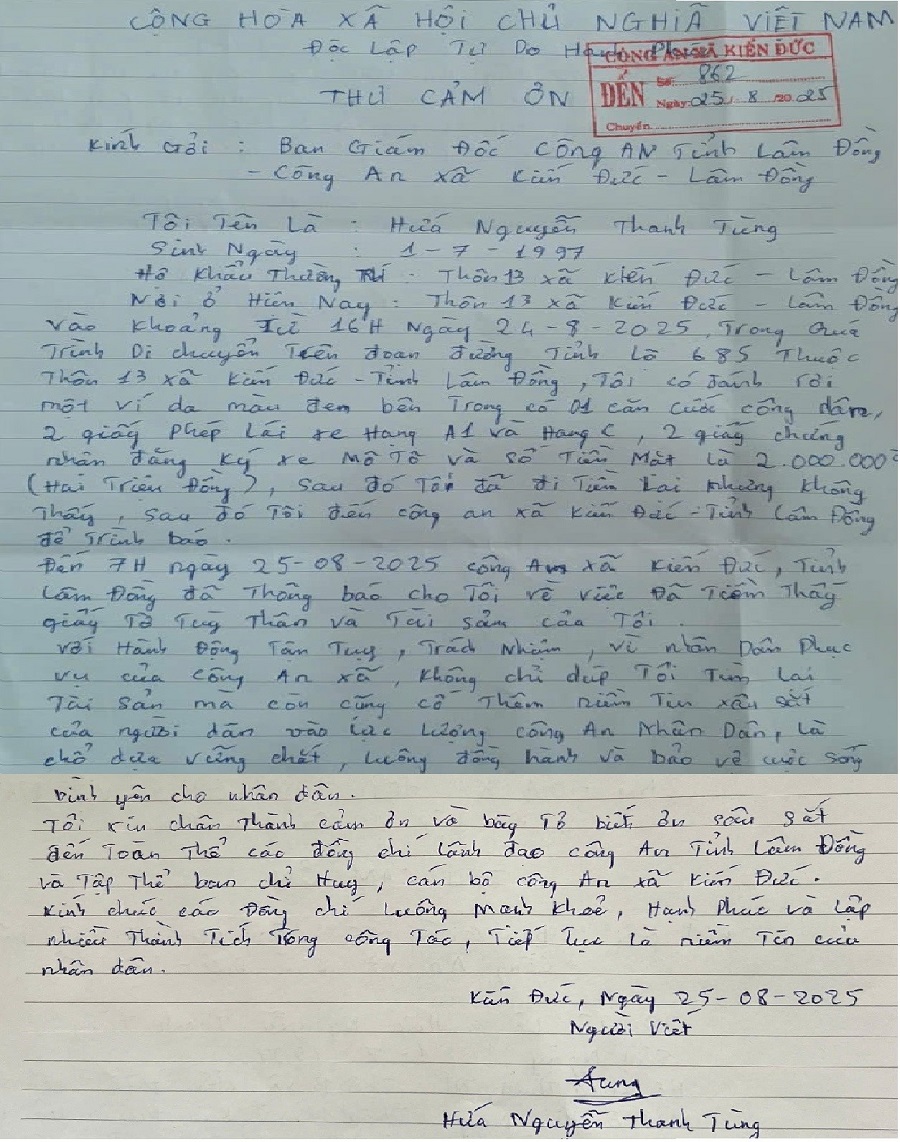 CỘNG HÒA XÃ HỘI CHỦ NGHĨA VIỆT NAM
Độc Lập Tự Do Hạnh Phúc
CÔNG AN XÃ KIẾN ĐỨC
ĐẾN
Số: 862
Ngày: 25 / 8 /2025
Chuyển
THƯ CẢM ƠN
Kính Gởi : Ban Giám Đốc Công AN Tỉnh Lâm Đồng
- Công An xã Kiến Đức - Lâm Đồng
Tôi Tên Là : Hứa Nguyễn Thanh Tùng
Sinh Ngày : 1-7-1997
Hộ Khẩu Thường Trú : Thôn 13 xã Kiến Đức - Lâm Đồng
Nơi ở Hiện Nay : Thôn 13 xã Kiến Đức - Lâm Đồng
Vào Khoảng Từ 16H Ngày 24-8-2025, Trong Quá
Trình Di chuyển Trên đoạn đường Tỉnh Lộ 685 Thuộc
Thôn 13 xã Kiến Đức - Tỉnh Lâm Đồng, Tôi có đánh rơi
một ví da màu đen bên Trong có 01 căn cước công dân,
2 giấy phép lái xe Hạng A1 và Hạng C, 2 giấy chứng
nhận đăng ký xe Mô Tô và Số Tiền Mặt là 2.000.000đ
(Hai Triệu Đồng), Sau đó Tôi đã đi Tìm Lại nhưng không
Thấy, Sau đó Tôi đến công an xã Kiến Đức - Tỉnh Lâm Đồng
để Trình báo.
Đến 7H ngày 25-08-2025 công An xã Kiến Đức, Tỉnh
Lâm Đồng đã Thông báo cho Tôi về việc Đã Tìm Thấy
giấy Tờ Tùy Thân và Tài sản của Tôi.
Với Hành Động Tận Tụy, Trách Nhiệm, vì nhân Dân Phục
vụ của Công An xã, không chỉ dúp Tôi Tìm Lại
Tài Sản mà còn cũng cố Thêm niềm Tin sâu sắt
của người dân vào Lực Lượng công An Nhân Dân, là
chỗ dựa vững chắt, Luông đồng hành và bảo vệ cuộc sống
bình yên cho nhân dân.
Tôi xin chân Thành cảm ơn và bày Tỏ biết ơn sâu sắt
đến Toàn Thể các đồng chí lãnh đạo công An Tỉnh Lâm Đồng
và Tập Thể ban chỉ Huy, cán bộ công An xã Kiến Đức.
Kính chúc các Đồng chí Luông Mạnh Khoẻ, Hạnh Phúc và Lập
nhiều Thành Tích Trong công Tác, Tiếp Tục là niềm Tin của
nhân dân.
Kiến Đức, Ngày 25-08-2025
Người Viết
Hứa Nguyễn Thanh Tùng